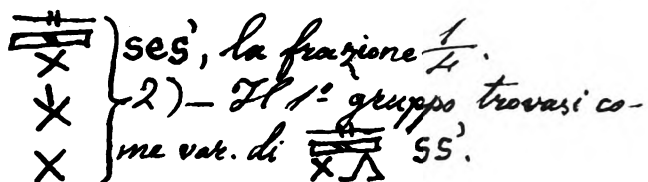 ses', la frazione 1/4.
2) — Il 1º gruppo trovasi co-
me var. di 𓊃𓋴𓏴𓂻 ss'.